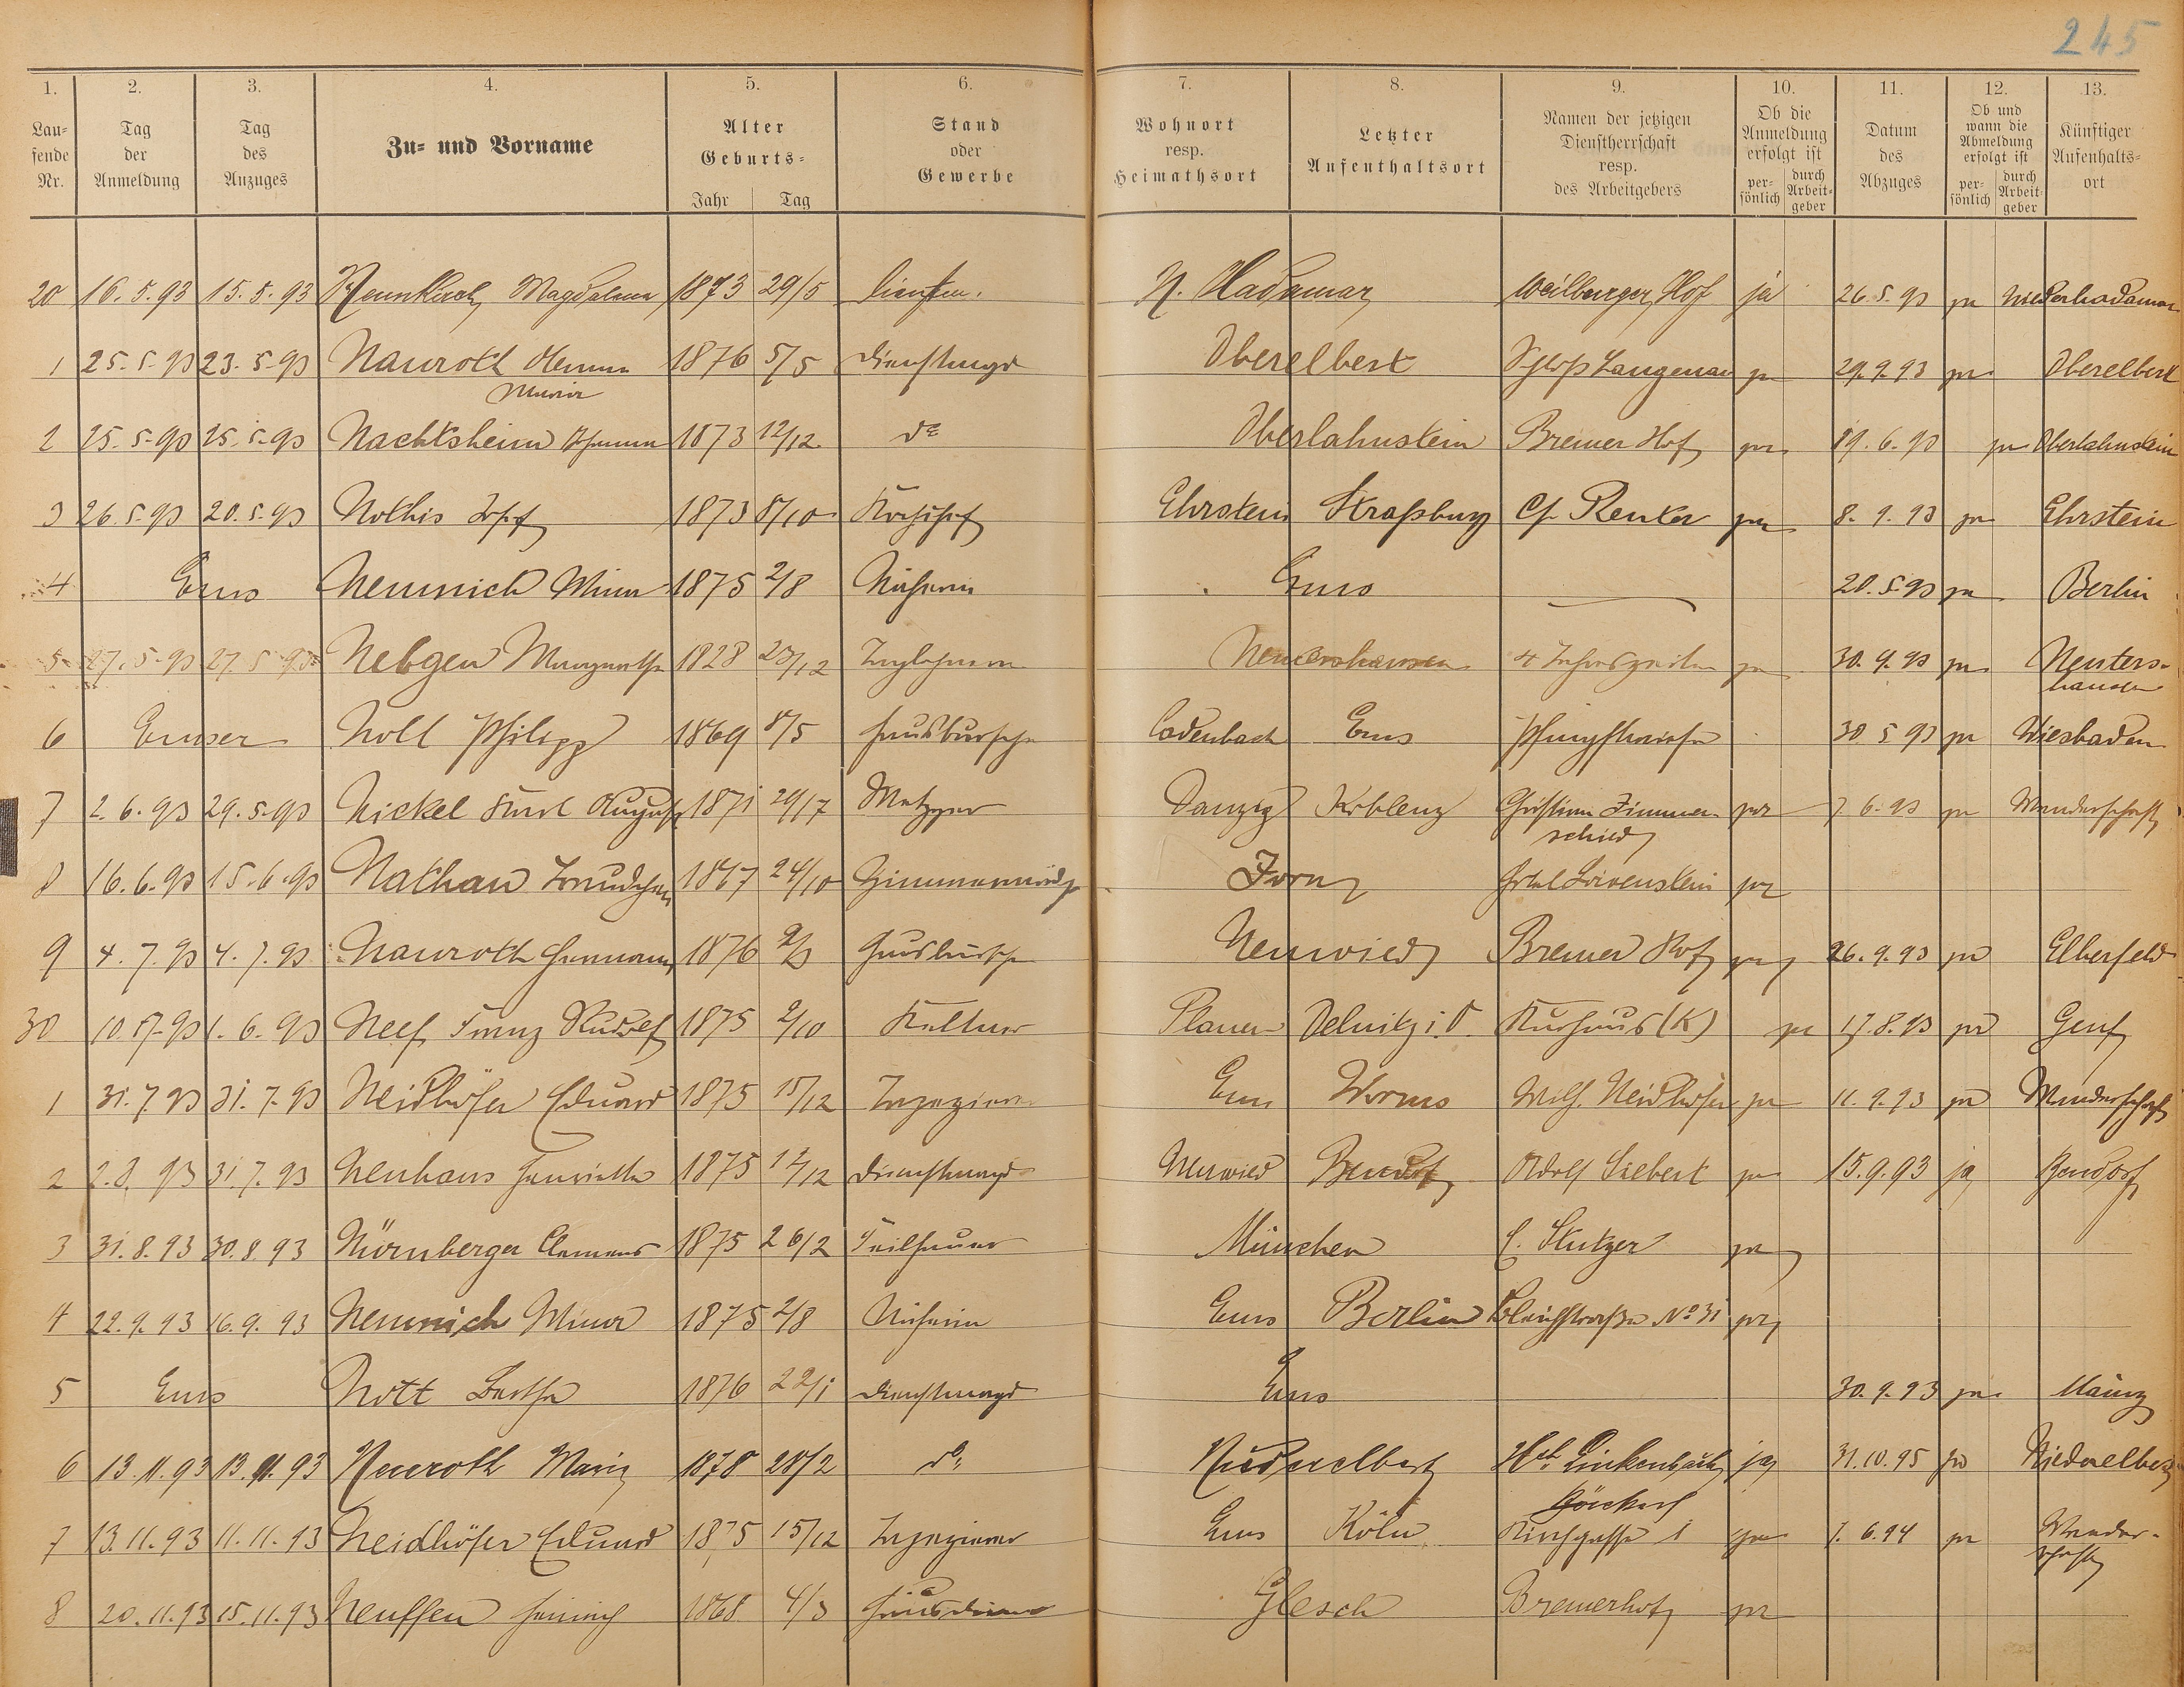 245
1. 2. 3. 4. 5. 6. 7. 8. 9. 10. 11. 12. 13.
Laufende Nr. Tag der Anmeldung Tag des Anzuges Zu- und Vorname Alter Geburts- Jahr Tag Stand oder Gewerbe Wohnort resp. Heimathsort Letzter Aufenthaltsort Namen der jetzigen Dienstherrschaft resp. des Arbeitgebers Ob die Anmeldung erfolgt ist persönlich durch Arbeitgeber Datum des Abzuges Ob und wann die Abmeldung erfolgt ist persönlich durch Arbeitgeber Künftiger Aufenhaltsort
20 16.5.93 15.5.93 Magdalena 1873 29/5 N. Hadamar Weilburger Hof ja 26.5.93 ja Niederhadamar
1 25.5.93 23.5.93 Nauroth Anna 1876 5/5 Dienstmagd Oberelbert Schloß Langenau ja 29.9.93 ja Oberelbert
Maria
2 25.5.93 25.5.93 Nachtsheim 1873 12/12 do Oberlahnstein Bremer Hof ja 19.6.93 ja Oberlahnstein
3 26.5.93 20.5.93 Nothis Josef 1873 8/10 Ehrstein Straßburg Renker ja 8.9.93 ja Ehrstein
4 Ems Nemnich Minna 1875 2/8 Näherin Ems 20.5.93 ja Berlin
5 27.5.93 27.5.93 Nebgen Margaretha 1828 23/12 Neutershausen 4 Jahreszeiten ja 30.9.93 ja Neuters-
hausen
6 Emser Noll Philipp 1869 8/5 Hausbursche Cadenbach Ems 30.5.93 ja Wiesbaden
7 2.6.93 29.5.93 Nickel Karl August 1871 29/7 Metzger Danzig Koblenz Christian Zimmer- ja 7.6.93 ja Wanderschaft
schied
8 16.6.93 15.6.93 Nathan 1867 24/10 Zimmermädch Hotel Löwenstein ja
9 4.7.93 4.7.93 Nauroth Hermann 1876 2/3 Hausbursche Neuwied Bremer Hof ja 26.9.93 ja Elberfeld
30 1.6.93 Neef Franz Rudolf 1875 2/10 Kellner Plauen Oelnitz i. V. Kurhaus (K) ja 17.8.93 ja Genf
1 31.7.93 31.7.93 Neidhöfer Eduard 1875 15/12 Tapezierer Ems Worms Wilh. Neidhöfer ja 11.9.93 ja Wanderschaft
2 2.8.93 31.7.93 Neuhaus Henriette 1875 12/12 Dienstmagd Neuwied Bendorf Adolf Siebert ja 15.9.93 ja Bendorf
3 31.8.93 30.8.93 Nürnberger Clemens 1875 26/2 Feilhauer München C. Stutzer ja
4 22.9.93 16.9.93 Nemnich Minna 1875 2/8 Näherin Ems Berlin Bleichstraße No 31 ja
5 Ems Nott Bertha 1876 22/1 Dienstmagd Ems 30.9.93 ja Mainz
6 13.11.93 13.11.93 Neuroth Maria 1878 28/2 do Niederelbert Hch. Linkenbach ja 31.10.95 ja Niederelbert
7 13.11.93 11.11.93 Neidhöfer Eduard 1875 15/12 Tapezierer Ems Köln Kirchgasse 1 ja 7.6.94 ja Wander-
schaft
8 20.11.93 15.11.93 Neuffen Heinrich 1868 4/3 Hausdiener Glesch Bremerhof ja